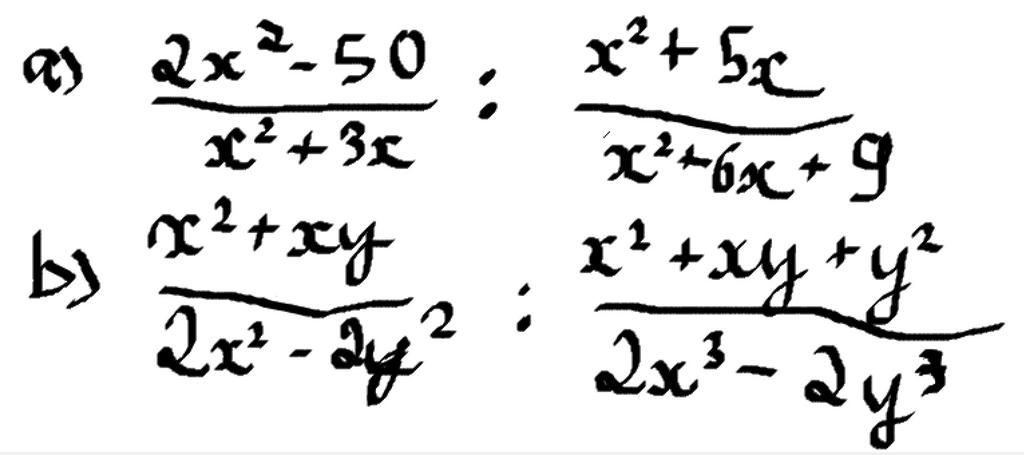 a) (2x² - 50)/(x² + 3x) : (x² + 5x)/(x² + 6x + 9)
b) (x² + xy)/(2x² - 2y²) : (x² + xy + y²)/(2x³ - 2y³)